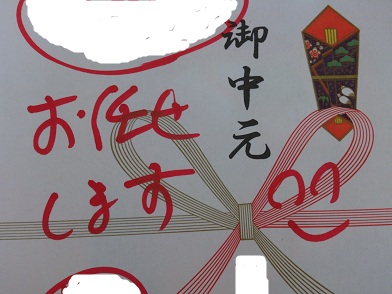 御中元
お任せ
します